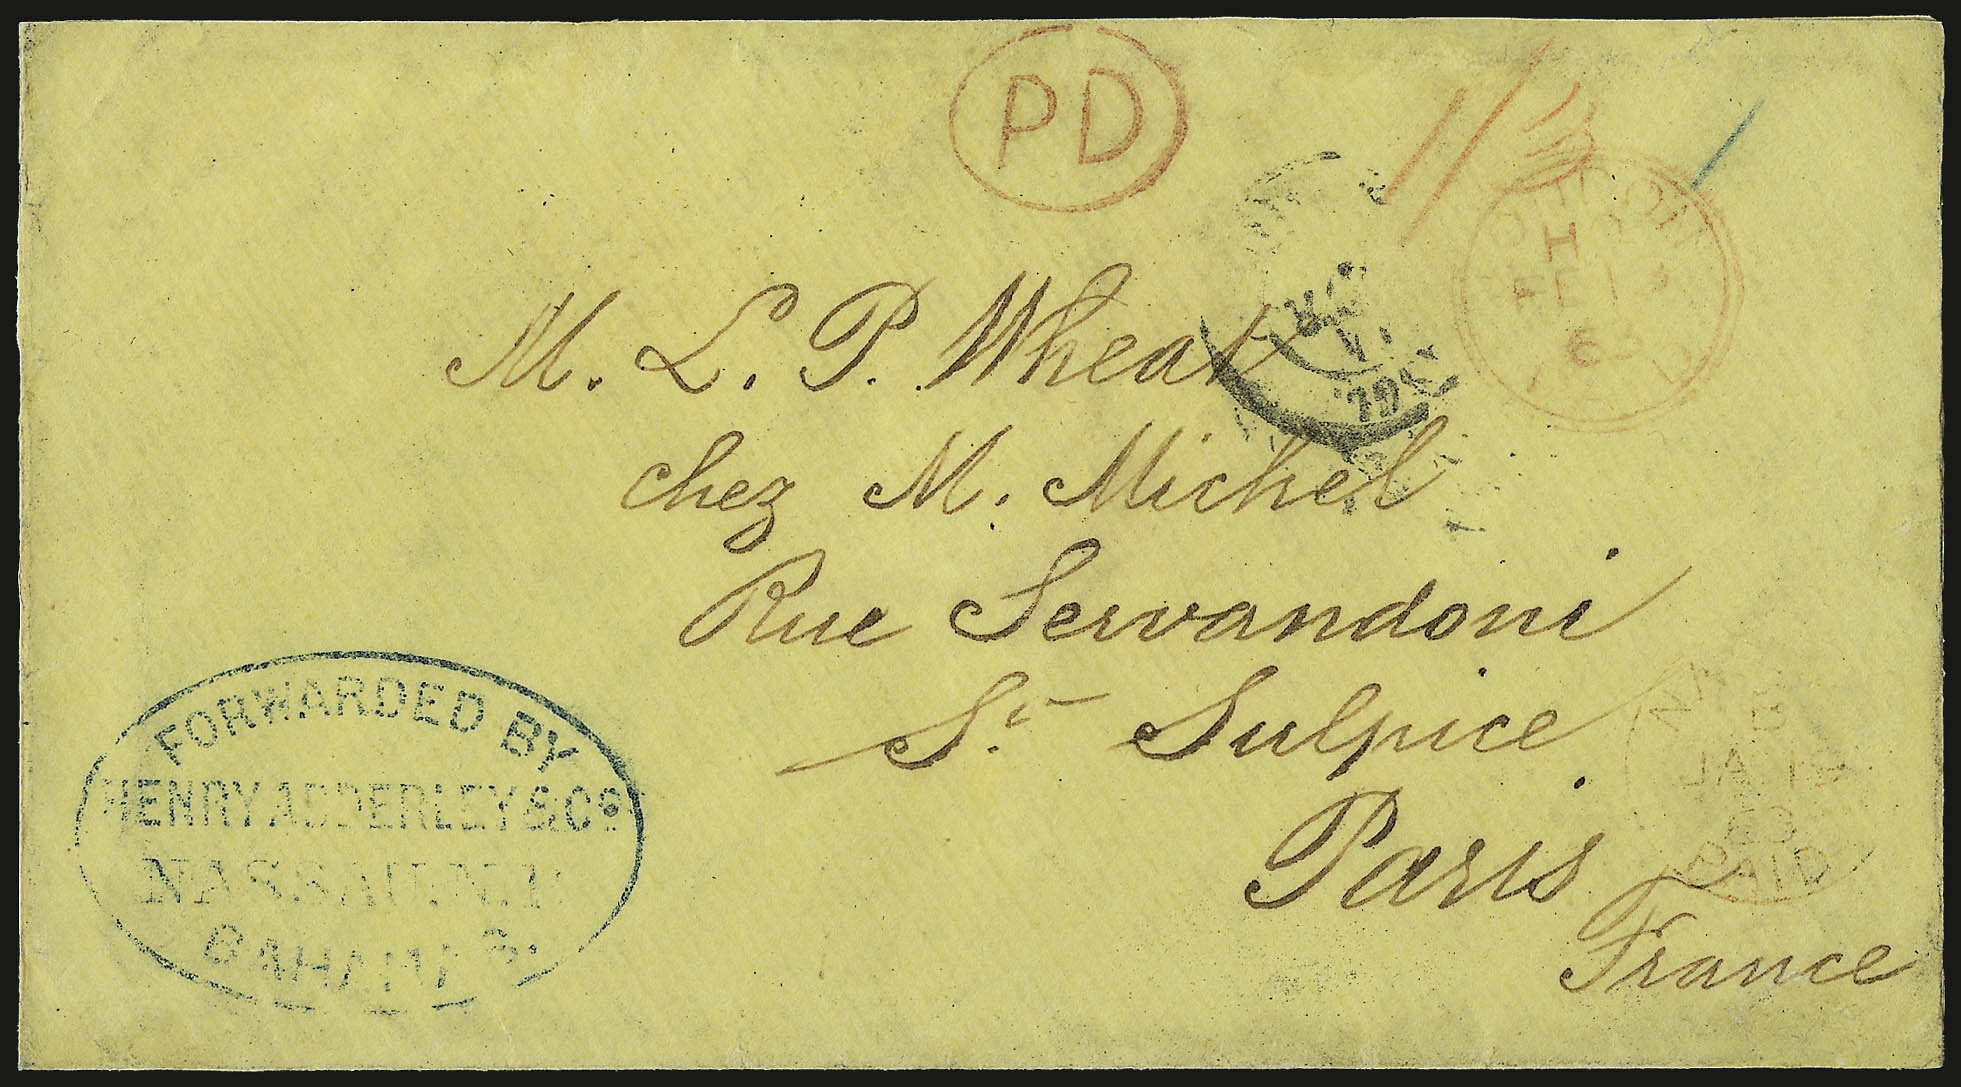 PD
H
FE 13
63
M. L. P. Wheat
chez M. Michel
Rue Servandoni
St Sulpice
Paris
France
FORWARDED BY
HENRY ADDERLEY & Co
NASSAU. N.P.
BAHAMAS.
B
JA
63
PAID